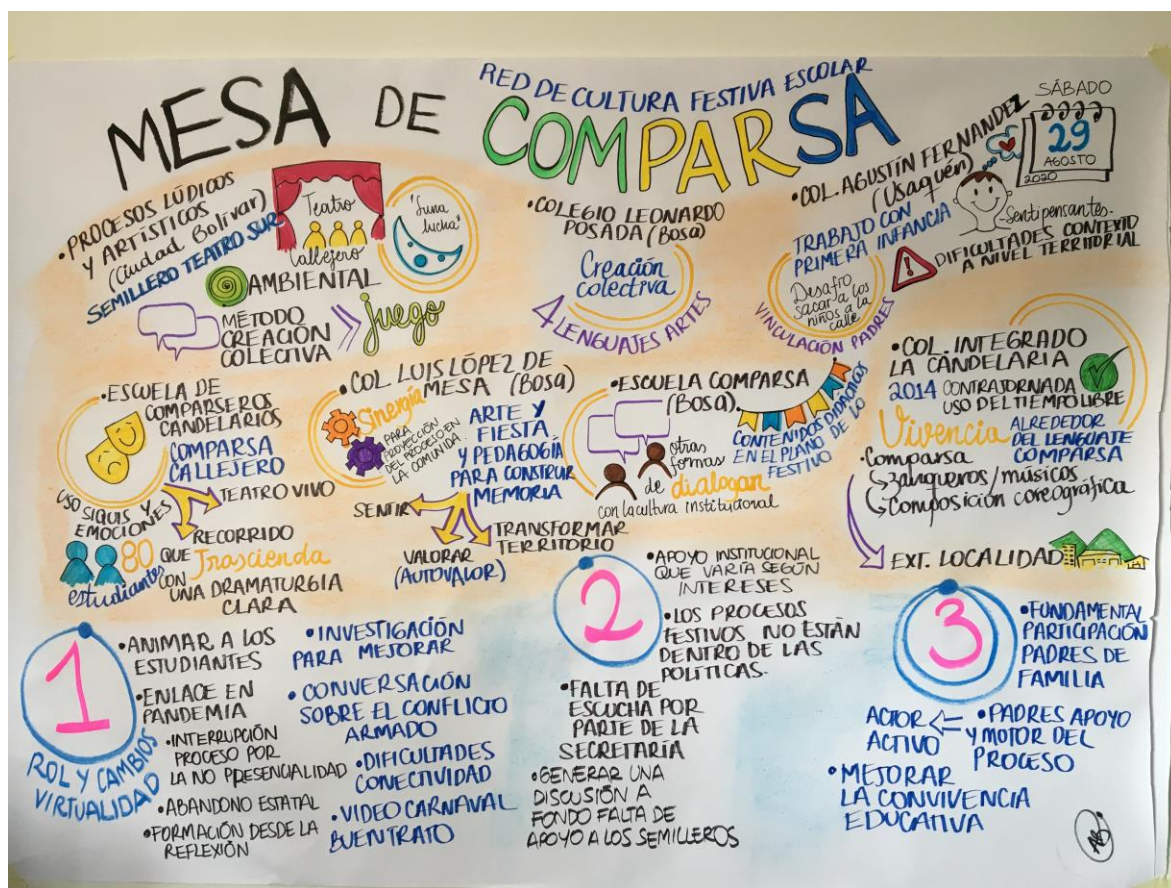 RED DE CULTURA FESTIVA ESCOLAR
MESA DE COMPARSA
SÁBADO
29
AGOSTO
2020
•PROCESOS LÚDICOS
Y ARTÍSTICOS
(Ciudad Bolívar)
SEMILLERO TEATRO SUR
Teatro
Callejero
"Juna
lucha"
AMBIENTAL
MÉTODO
CREACIÓN
COLECTIVA
juego
•COLEGIO LEONARDO
POSADA (Bosa)
Creación
colectiva
4 LENGUAJES ARTES
•COL. AGUSTÍN FERNANDEZ
(Usaquén)
TRABAJO CON
PRIMERA INFANCIA
Desafío
sacar a los
niños a la
calle
VINCULACIÓN PADRES
Sentipensantes.
DIFICULTADES CONTEXTO
A NIVEL TERRITORIAL
•ESCUELA DE
COMPARSEROS
CANDELARIOS
COMPARSA
CALLEJERO
USO SIQUIS Y
EMOCIONES
TEATRO VIVO
RECORRIDO
QUE Trascienda
CON
UNA DRAMATURGIA
CLARA
80
estudiantes
•COL LUIS LÓPEZ DE
MESA (Bosa)
Sinergía
PARA
PROYECCIÓN
DEL PROCESO EN
LA COMUNIDA.
ARTE Y
FIESTA
Y PEDAGOGÍA
PARA CONSTRUIR
MEMORIA
SENTIR
VALORAR
(AUTOVALOR)
TRANSFORMAR
TERRITORIO
•ESCUELA COMPARSA
(BOSA).
otras
formas
de dialogan
con la cultura institucional
CONTENIDOS DIDÁCTICOS
EN EL PLANO DE LO
FESTIVO
•COL. INTEGRADO
LA CANDELARIA
2014 CONTRAJORNADA
USO DEL TIEMPO LIBRE
Vivencia ALREDEDOR
DEL LENGUATE
COMPARSA
•Comparsa
zanqueros/músicos
Composición coreográfica
EXT. LOCALIDAD
1
ROL Y CAMBIOS
VIRTUALIDAD
•ANIMAR A LOS
ESTUDIANTES
•ENLACE EN
PANDEMIA
•INTERRUPCIÓN
PROCESO POR
LA NO PRESENCIALIDAD
•ABANDONO ESTATAL
•FORMACIÓN DESDE LA
REFLEXIÓN
•INVESTIGACIÓN
PARA MEJORAR
•CONVERSACIÓN
SOBRE EL CONFLICTO
ARMADO
•DIFICULTADES
CONECTIVIDAD
•VIDEO CARNAVAL
BUENTRATO
2
•APOYO INSTITUCIONAL
QUE VARÍA SEGÚN
INTERESES
•LOS PROCESOS
FESTIVOS NO ESTÁN
DENTRO DE LAS
POLÍTICAS.
•FALTA DE
ESCUCHA POR
PARTE DE LA
SECRETARÍA
•GENERAR UNA
DISCUSIÓN A
FONDO FALTA DE
APOYO A LOS SEMILLEROS
3
•FUNDAMENTAL
PARTICIPACIÓN
PADRES DE
FAMILIA
•PADRES APOYO
Y MOTOR DEL
PROCESO
ACTOR
ACTIVO
•MEJORAR
LA CONVIVENCIA
EDUCATIVA